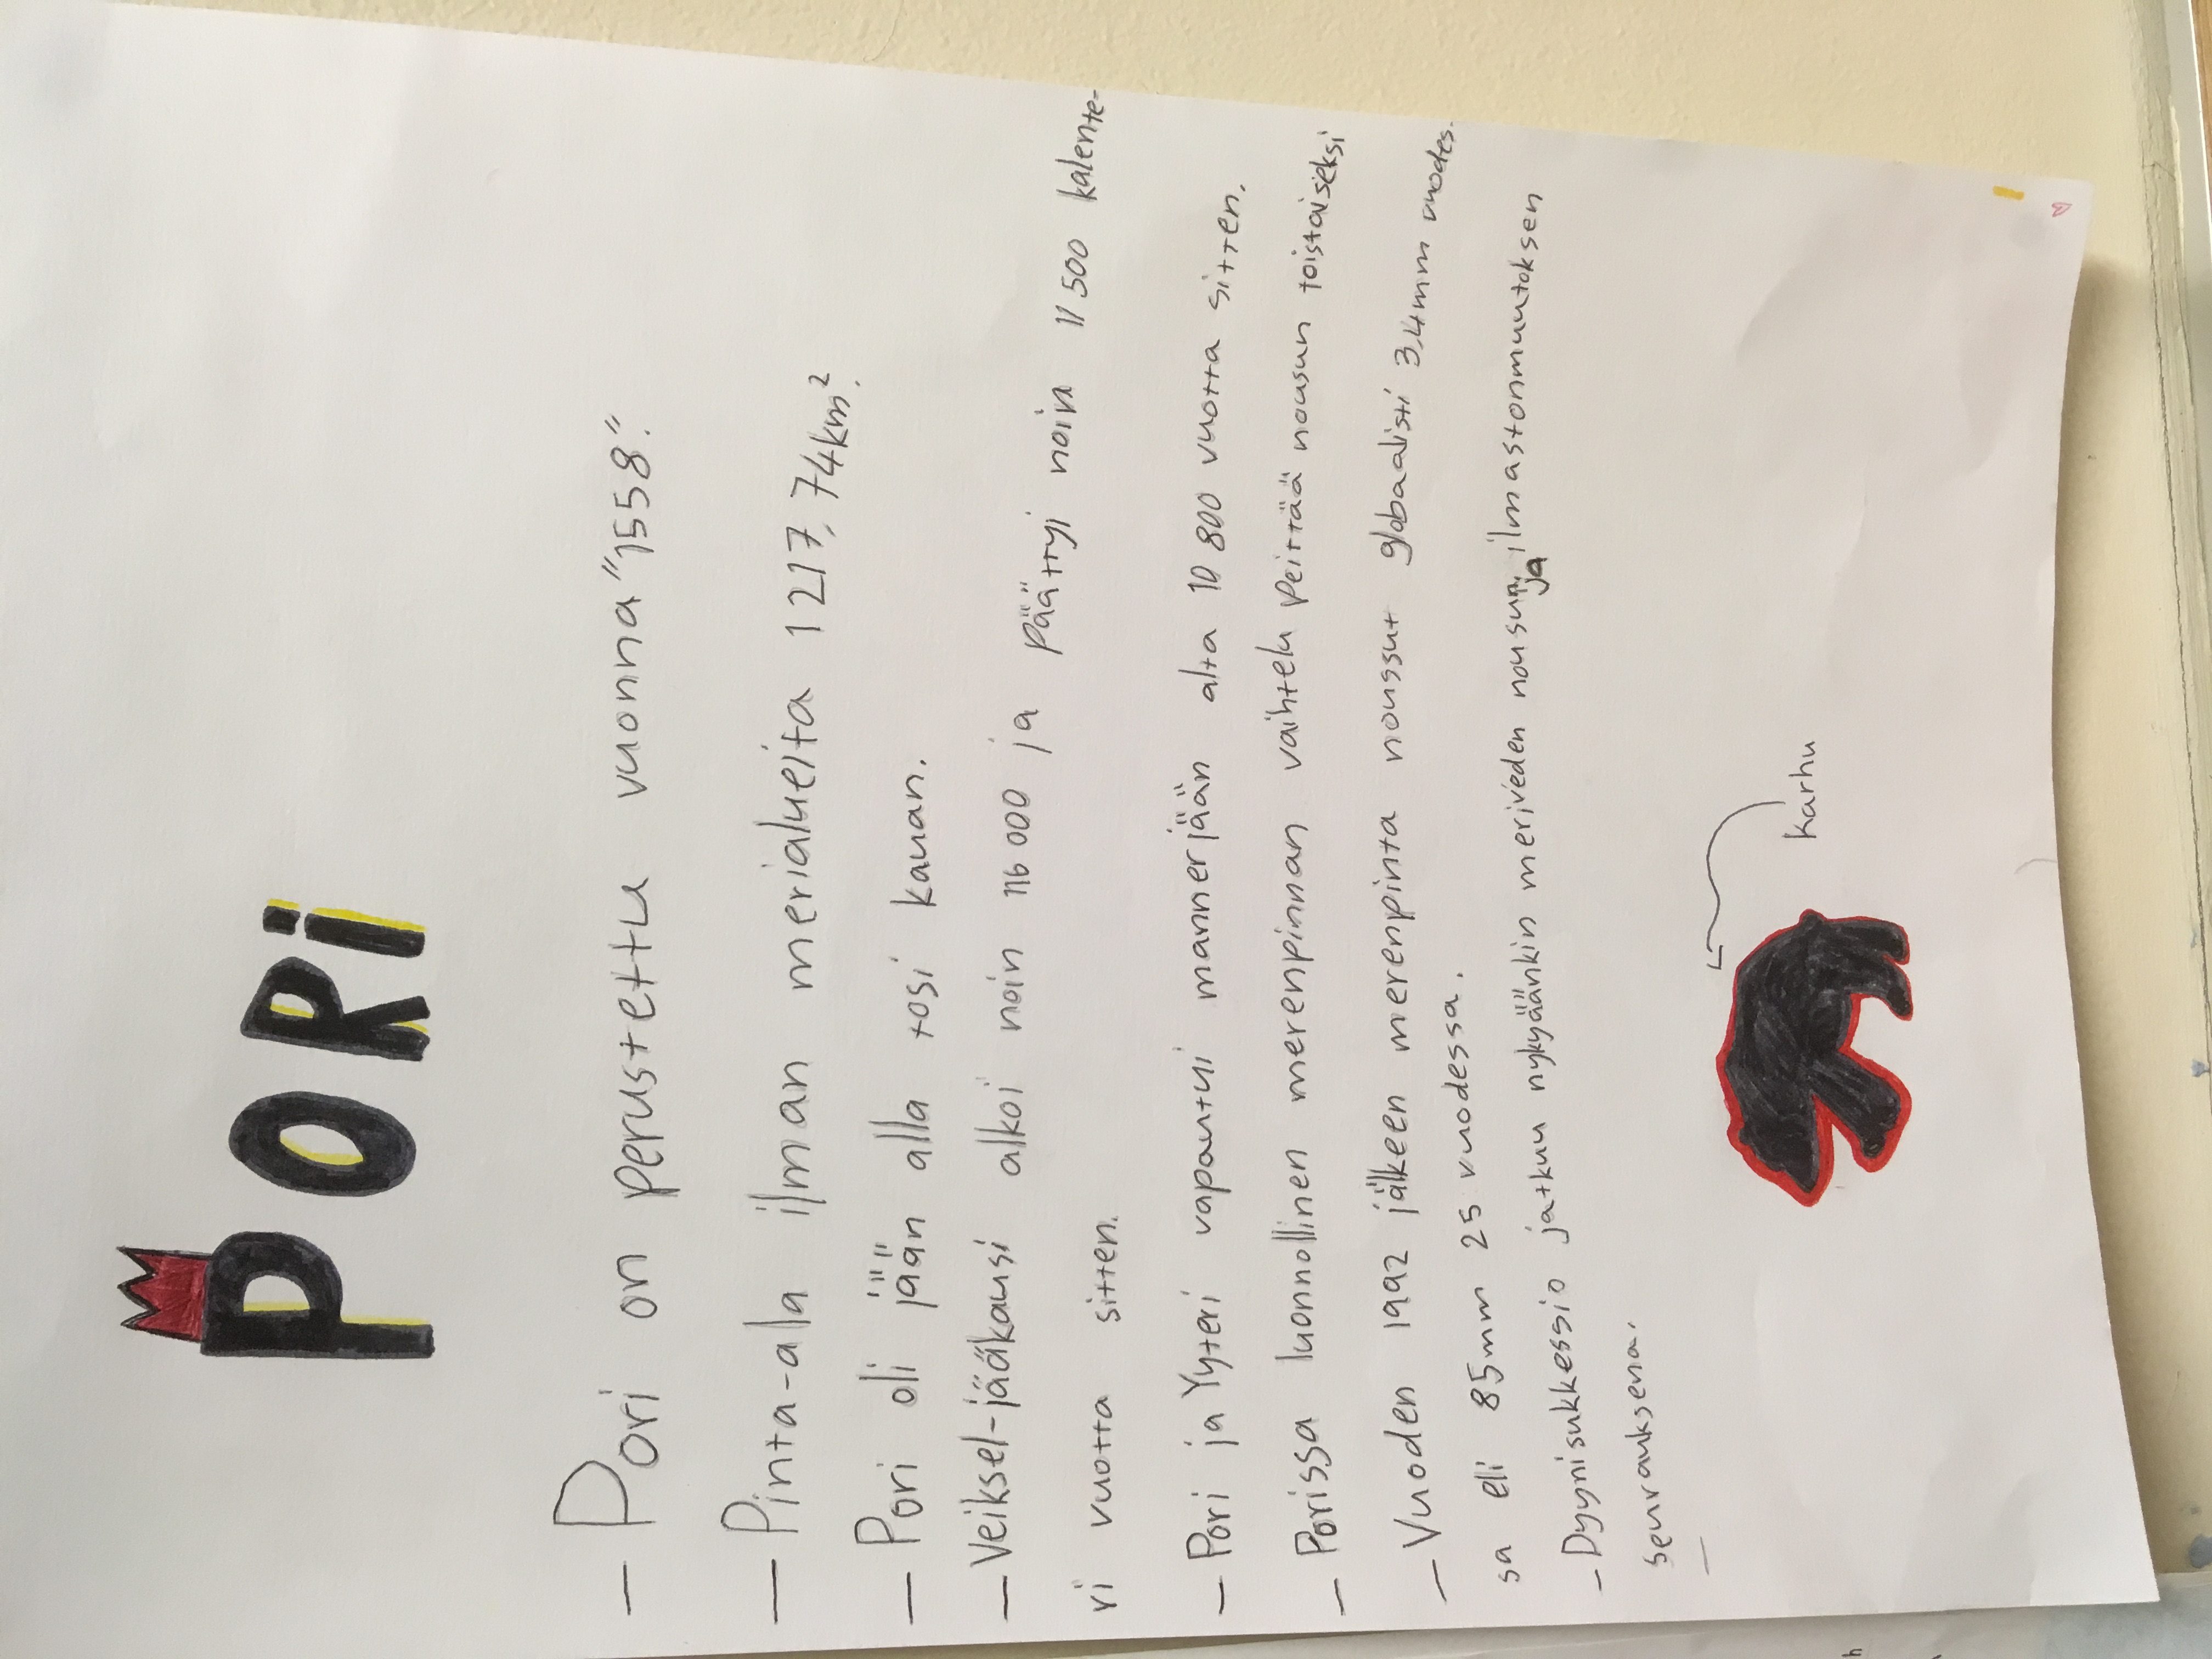 PORi
- Pori on perustettu vuonna "1558".
- Pinta-ala ilman merialueita 1217,74km².
- Pori oli jään alla tosi kauan.
- Veiksel-jääkausi alkoi noin 116 000 ja päättyi noin 11 500 kalente-
ri vuotta sitten.
- Pori ja Yyteri vapautui mannerjään alta 10 800 vuotta sitten.
- Porissa luonnollinen merenpinnan vaihtelu peittää nousun toistaiseksi
- Vuoden 1992 jälkeen merenpinta noussut globaalisti 3,4mm vuodes-
sa eli 85mm 25 vuodessa.
- Dyynisukkessio jatkuu nykyäänkin meriveden nousun ja ilmastonmuutoksen
seurauksena.
-
karhu